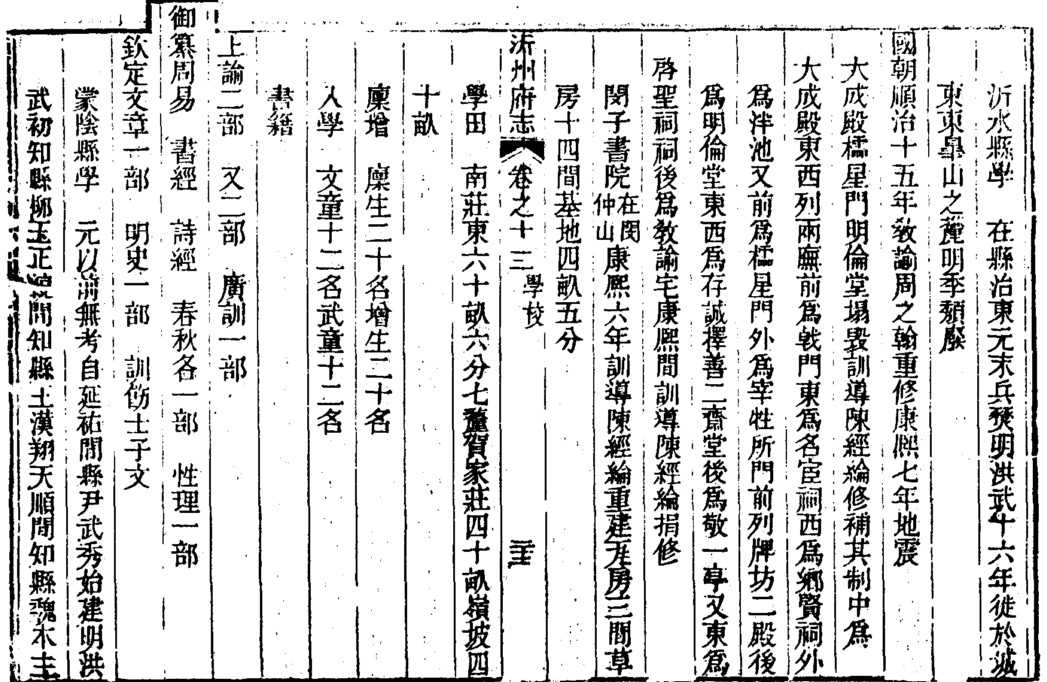 沂水縣學　在縣治東元末兵燹明洪武十六年徙於城
東東皋山之麓明季頹廢
國朝順治十五年敎諭周之翰重修康熙七年地震
大成殿櫺星門明倫堂塌毀訓導陳經綸修補其制中爲
大成殿東西列兩廡前爲戟門東爲名宦祠西爲鄉賢祠外
爲泮池又前爲櫺星門外爲宰牲所門前列牌坊二殿後
爲明倫堂東西爲存誠擇善二齋堂後爲敬一亭又東爲
啓聖祠祠後爲敎諭宅康熙間訓導陳經綸捐修
閔子書院在閔仲山康熙六年訓導陳經綸重建瓦房三間草
房十四間基地四畝五分
沂州府志　卷之十三　學校
學田　南莊東六十畝六分七釐賀家莊四十畝嶺坡四
十畝
廩增　廩生二十名增生二十名
入學　文童十二名武童十二名
書籍
上諭二部　又二部　廣訓一部
御纂周易　書經　詩經　春秋各一部　性理一部
欽定文章一部　明史一部　訓飭士子文
蒙陰縣學　元以前無考自延祐間縣尹武秀始建明洪
武初知縣柳玉正統間知縣王漢翔天順間知縣魏本